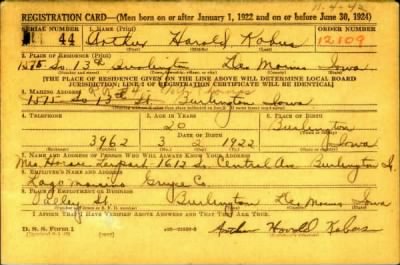 REGISTRATION CARD—(Men born on or after January 1, 1922 and on or before June 30, 1924)
SERIAL NUMBER 1. NAME (Print) ORDER NUMBER
44 Arthur Harold Kobus 12109
2. PLACE OF RESIDENCE (Print)
1575 So. 13th Burlington Des Moines Iowa
[THE PLACE OF RESIDENCE GIVEN ON THE LINE ABOVE WILL DETERMINE LOCAL BOARD
JURISDICTION; LINE 2 OF REGISTRATION CERTIFICATE WILL BE IDENTICAL]
3. MAILING ADDRESS
1575 So 13th St. Burlington Iowa
4. TELEPHONE 5. AGE IN YEARS 6. PLACE OF BIRTH
20 Burlington
DATE OF BIRTH
3962 3 2 1922 Iowa
7. NAME AND ADDRESS OF PERSON WHO WILL ALWAYS KNOW YOUR ADDRESS
Mrs. Horace 1613 So Central Ave Burlington Ia.
8. EMPLOYER'S NAME AND ADDRESS
Co.
9. PLACE OF EMPLOYMENT OR BUSINESS
St. Burlington Des Moines Iowa
I AFFIRM THAT I HAVE VERIFIED ABOVE ANSWERS AND THAT THEY ARE TRUE.
D. S. S. Form 1 Arthur Harold Kobus